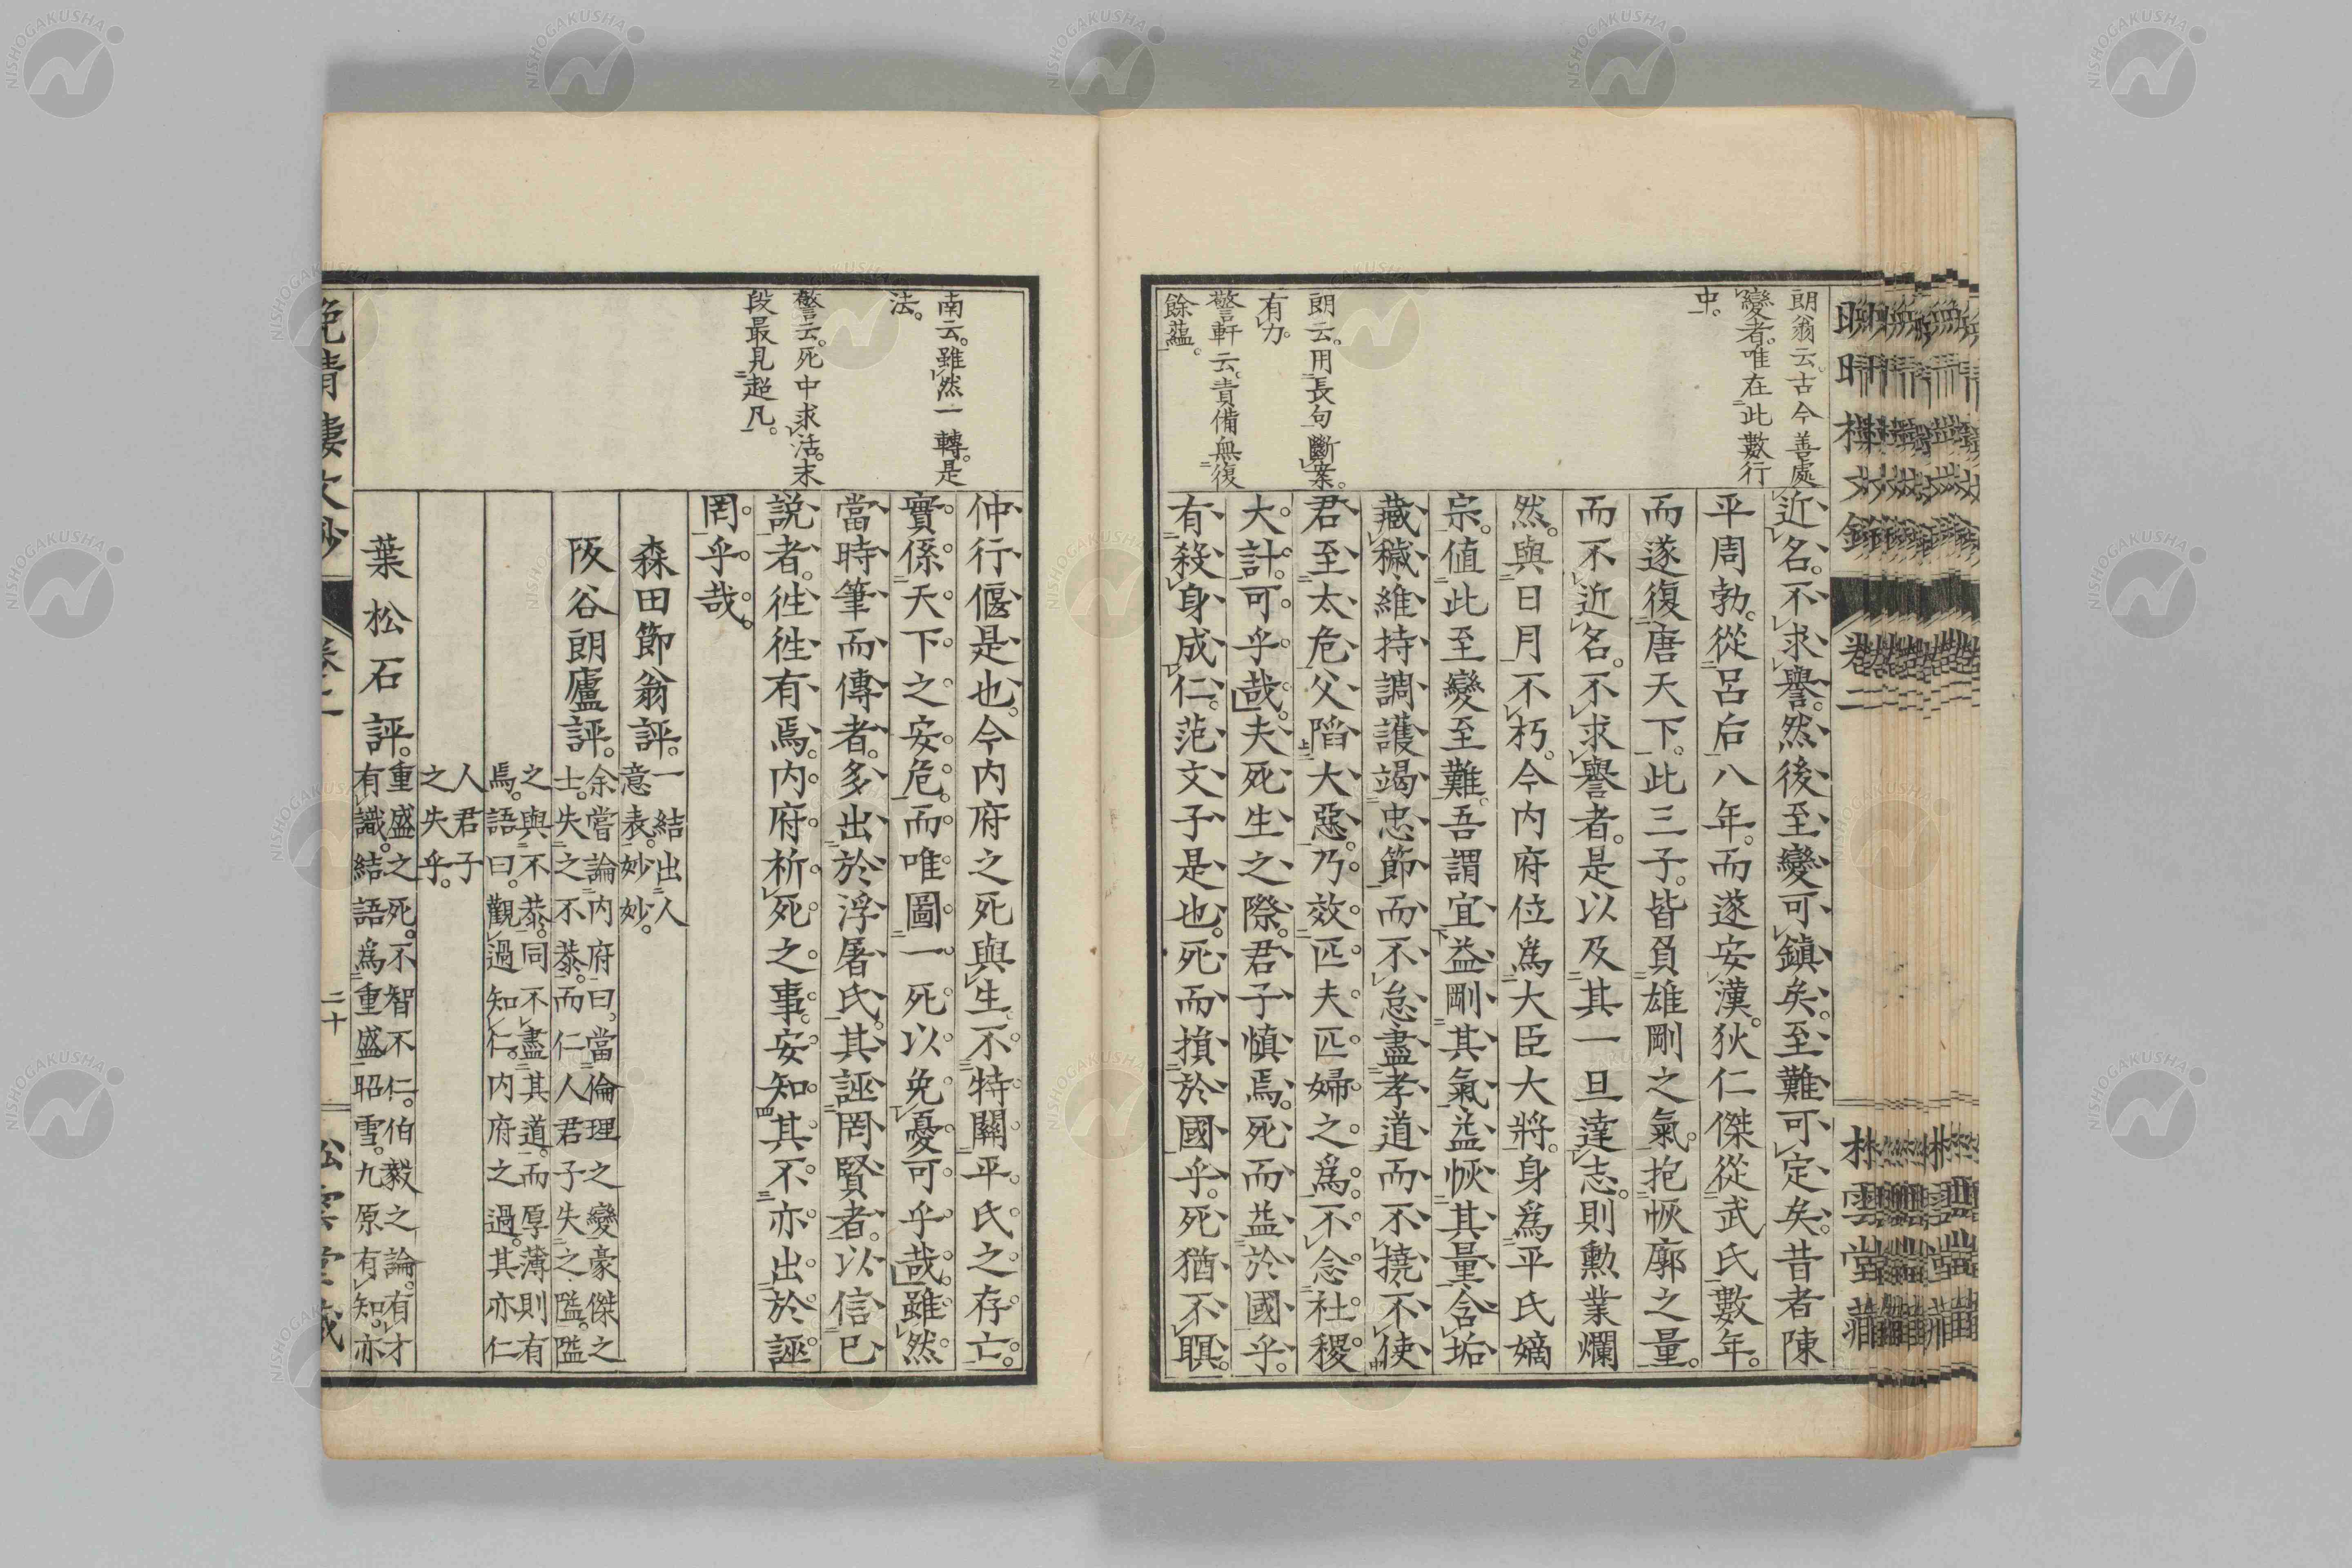 朗翁云。古今善處
變者。唯在此數行
中。
朗云。用長句斷案。
有力。
警軒云。責備無復
餘蘊。
近名。不求譽。然後至變可鎭矣。至難可定矣。昔者陳
平周勃。從呂后八年。而遂安漢。狄仁傑從武氏數年。
而遂復唐天下。此三子。皆負雄剛之氣。抱恢廓之量。
而不近名。不求譽者。是以及其一旦達志。則勳業爛
然。與日月不朽。今内府位爲大臣大將。身爲平氏嫡
宗。値此至變至難。吾謂宜益剛其氣。益恢其量。含垢
藏穢。維持調護。竭忠節而不怠。盡孝道而不撓。不使
君至太危。父陷大惡。乃效匹夫匹婦之爲。不念社稷
大計。可乎哉。夫死生之際。君子愼焉。死而益於國乎。
有殺身成仁。范文子是也。死而損於國乎。死猶不瞑。
南云。雖然一轉。是
法。
警云。死中求活。末
段最見超凡。
仲行偃是也。今内府之死與生。不特關平氏之存亡。
實係天下之安危。而唯圖一死以免憂可乎哉。雖然
當時筆而傳者。多出於浮屠氏。其誣罔賢者。以信已
説者。徃徃有焉。内府祈死之事。安知其不亦出於誣
罔乎哉。
森田節翁評。一結出人
意表。妙妙。
阪谷朗廬評。余嘗論内府曰。當倫理之變。豪傑之
士。失之不恭。而仁人君子失之隘。隘
之與不恭。同不盡其道。而厚薄則有
焉。語曰。觀過知仁。内府之過。其亦仁
人君子
之失乎。
葉松石評。重盛之死。不智不仁。伯毅之論。有才
有識。結語爲重盛昭雪。九原有知。亦
卷二
二十
NISHOGAKUSHA